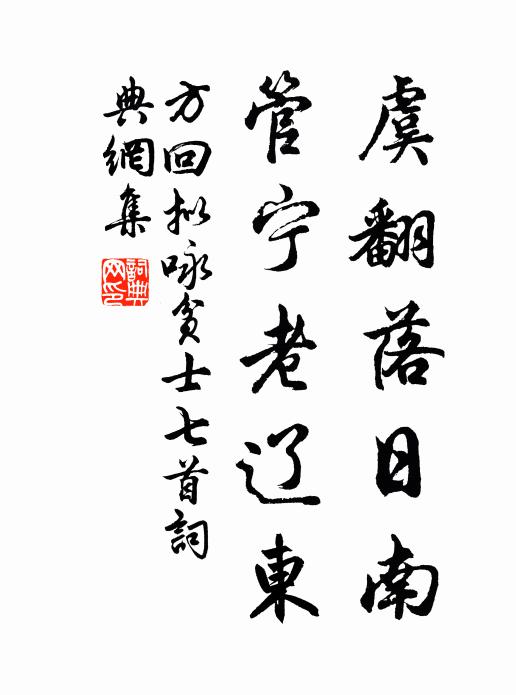 虞翻落日南
管宁老辽東
方回拟咏貧士七首詞
典網集
詞典网印